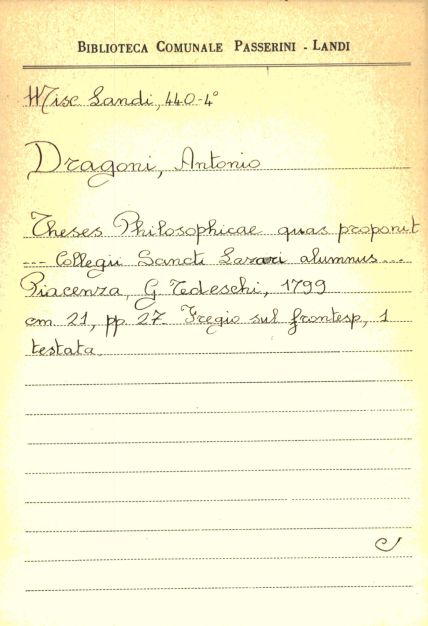 BIBLIOTECA COMUNALE PASSERINI - LANDI
Misc Landi, 440-4°
Dragoni, Antonio
Theses Philosophicae quas proponit
--- Collegii Sancti Lazari alumnus...
Piacenza, G Tedeschi, 1799
cm 21, pp 27. Fregio sul frontesp, 1
testata.